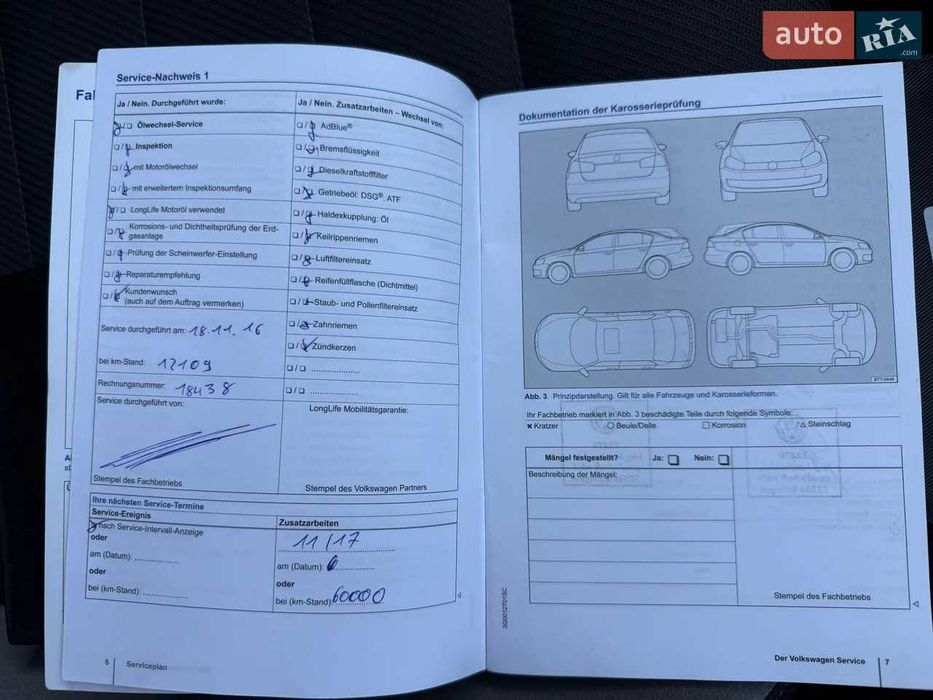 auto RIA
.com
Fal
Service-Nachweis 1
Ja / Nein. Durchgeführt wurde:
Ölwechsel-Service
Inspektion
mit Motorölwechsel
mit erweitertem Inspektionsumfang
LongLife Motoröl verwendet
Korrosions- und Dichtheitsprüfung der Erd-
gasanlage
Prüfung der Scheinwerfer-Einstellung
Reparaturempfehlung
Kundenwunsch
(auch auf dem Auftrag vermerken)
Service durchgeführt am: 18.11.16
bei km-Stand: 12109
Rechnungsnummer: 18438
Service durchgeführt von:
Stempel des Fachbetriebs
Ja / Nein. Zusatzarbeiten – Wechsel von:
AdBlue®
Bremsflüssigkeit
Dieselkraftstofffilter
Getriebeöl: DSG®, ATF
Haldexkupplung: Öl
Keilrippenriemen
Luftfiltereinsatz
Reifenfüllflasche (Dichtmittel)
Staub- und Pollenfiltereinsatz
Zahnriemen
Zündkerzen
LongLife Mobilitätsgarantie:
Stempel des Volkswagen Partners
Ihre nächsten Service-Termine
Service-Ereignis
nach Service-Intervall-Anzeige
oder
am (Datum):
oder
bei (km-Stand):
Zusatzarbeiten
11/17
am (Datum):
oder
bei (km-Stand): 60000
6 Serviceplan
Dokumentation der Karosserieprüfung
Abb. 3 Prinzipdarstellung. Gilt für alle Fahrzeuge und Karosserieformen.
Ihr Fachbetrieb markiert in Abb. 3 beschädigte Teile durch folgende Symbole:
× Kratzer ○ Beule/Delle □ Korrosion △ Steinschlag
Mängel festgestellt? Ja: Nein:
Beschreibung der Mängel:
Stempel des Fachbetriebs
Der Volkswagen Service 7